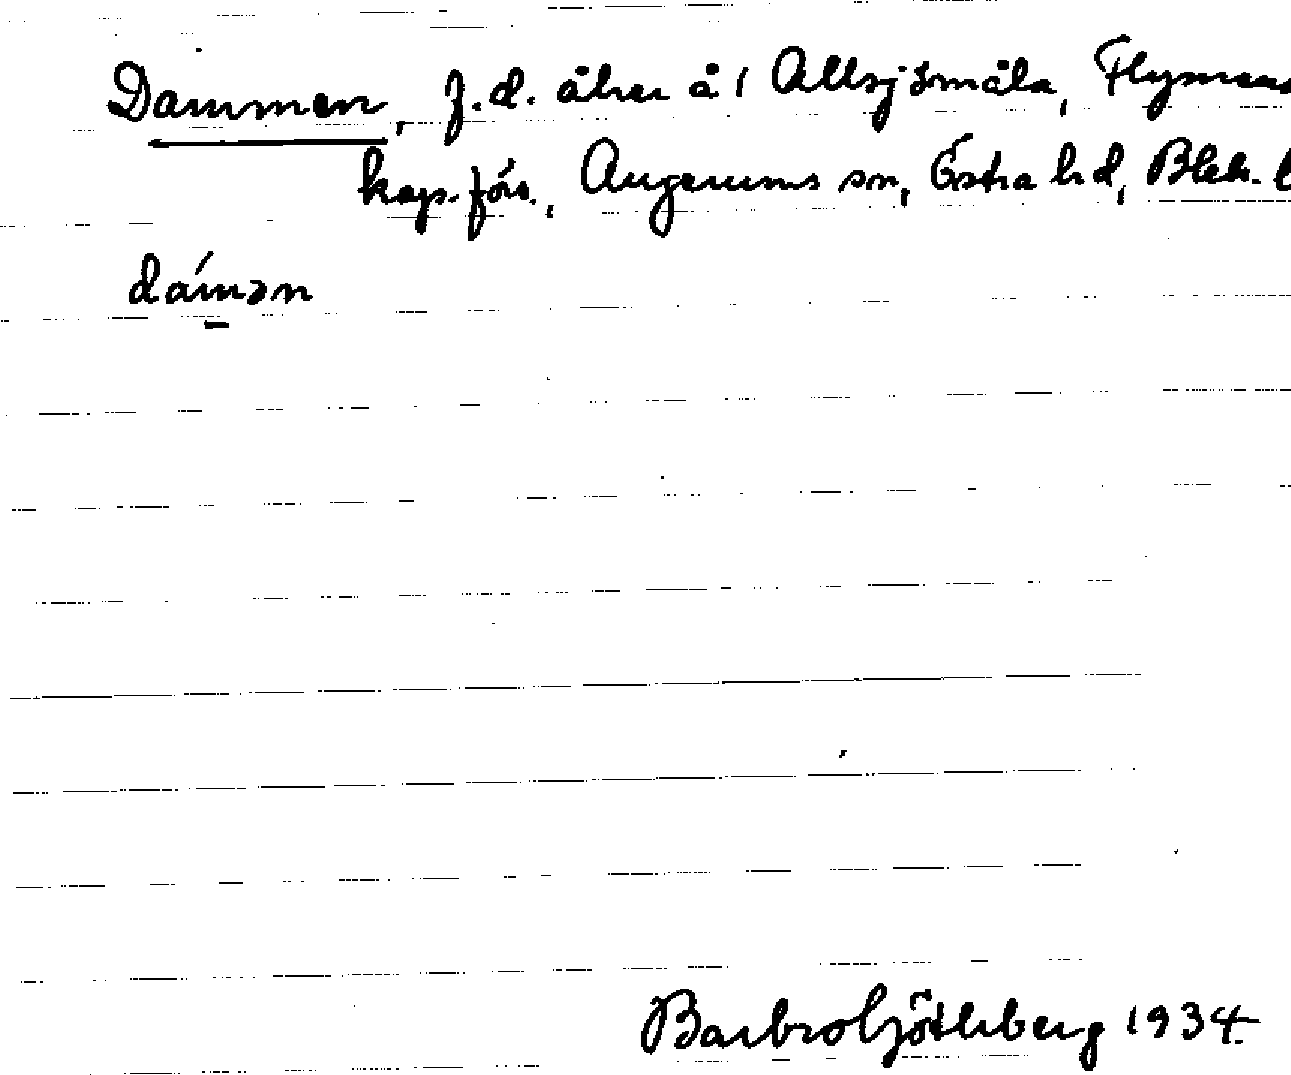 Dammen, f.d. åker å 1 Allsjömåla, Flymens
kap.förs., Augerums sn, Östra hd, Blek. l
dámən
Barbro Götherberg 1934.